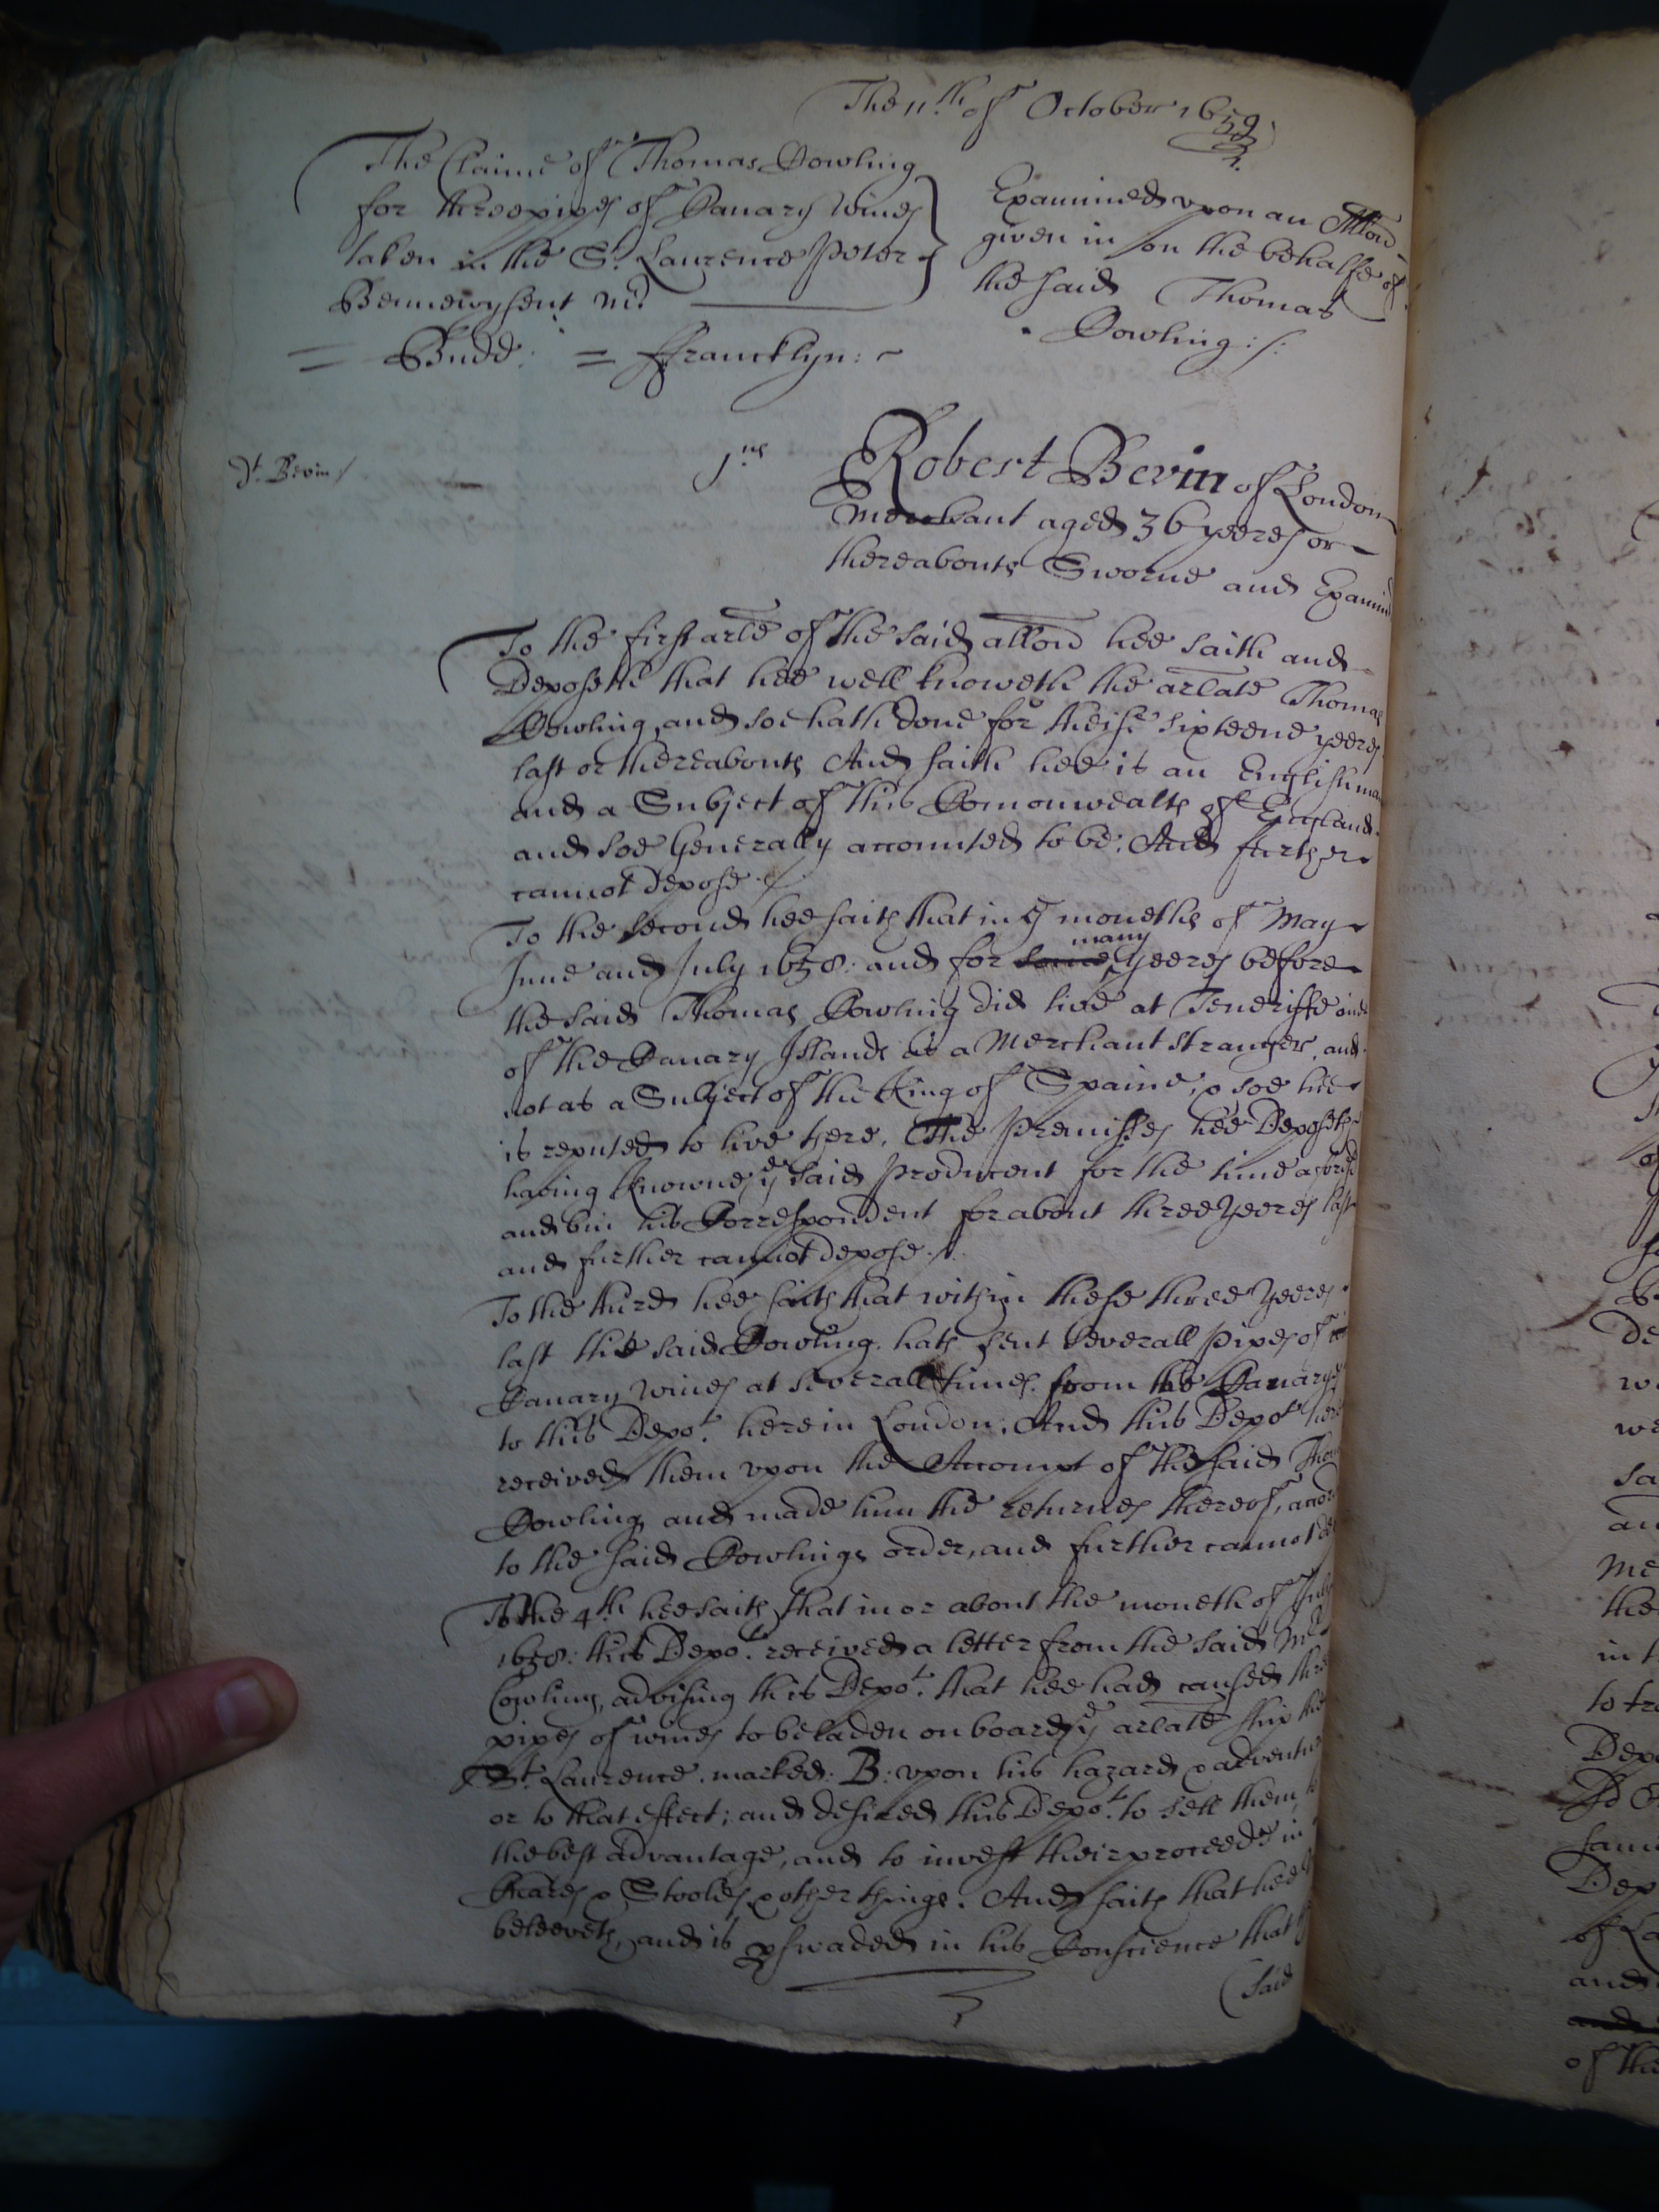 The 11.th of October 1659.
The Claime of Thomas Cowling
for three pipes of Canary wines
taken in the St. Laurence Peter
Bennewysent Mr.
Examined upon an Alłon
given in on the behalfe of
the said Thomas
Cowling :/:
= Budd: = ffrancklyn: ~
dt. Bevin :/
1.us
Robert Bevin of London
Merchant aged 36 yeeres or
thereabouts Sworne and Examined
To the first artẽ of the said allõn hee saith and
Deposeth that hee well knoweth the arlate Thomas
Cowling, and soe hath done for theise sixteene yeeres
last or thereabouts And saith hee is an Englishman
and a Subject of this Comonwealth of England
and soe Generally accounted to be; And further
cannot depose ./.
To the second hee saith that in ye moneths of May
June and July 1658: and for some many yeeres before
the said Thomas Cowling did live at Teneriffe one
of the Canary Islands as a Merchant stranger, and
not as a Subject of the King of Spaine, & soe hee
is reputed to live there. The Premisses hee Deposeth
having knowne ye said Producent for the time aforesd
and bin his Correspondent for about three yeeres last
and further cannot depose ./.
To the third hee saith that within these three yeeres
last the said Cowling hath sent severall Pipes of
Canary wines at severall times from the Canarys
to this Depot. here in London. And this Depot. here
received them upon the Accompt of the said Thom
Cowling and made him the returnes thereof, accord
to the said Cowlings order, and further cannot de
To the 4th hee saith that in or about the moneth of July
1658: this Depot. received a letter from the said Mr
Cowling, advising this Depot. that hee had caused three
pipes of wines to be laden on board ye arlate ship the
St. Laurence. marked: B: upon his hazard & adventure
or to that effect; and desired this Depot. to sell them to
the best advantage, and to invest their proceede in
Chares & Stooles & other things. And saith that hee
beleeveth, and is pswaded in his Conscience that
(said